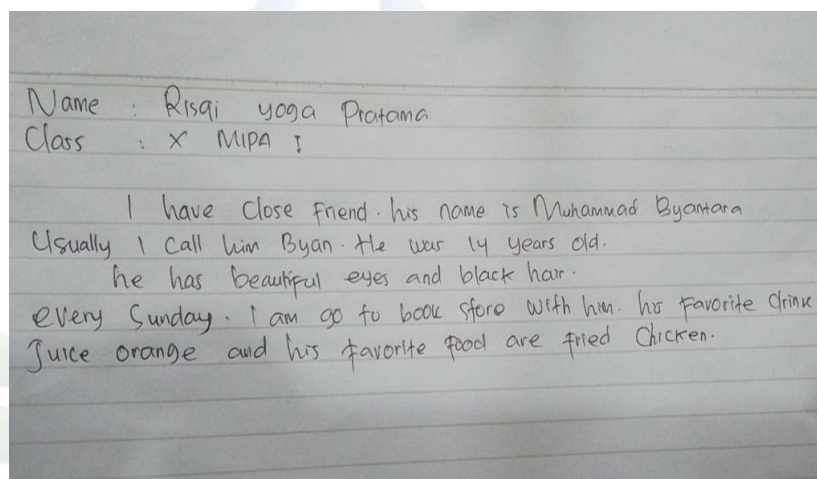 Name : Risqi yoga Pratama
Class : X MIPA I
I have close friend. his name is Muhammad Byantara
Usually I call him Byan. He was 14 years old.
he has beautiful eyes and black hair.
every Sunday. I am go to book store with him. his favorite drink
Juice orange and his favorite food are fried Chicken.